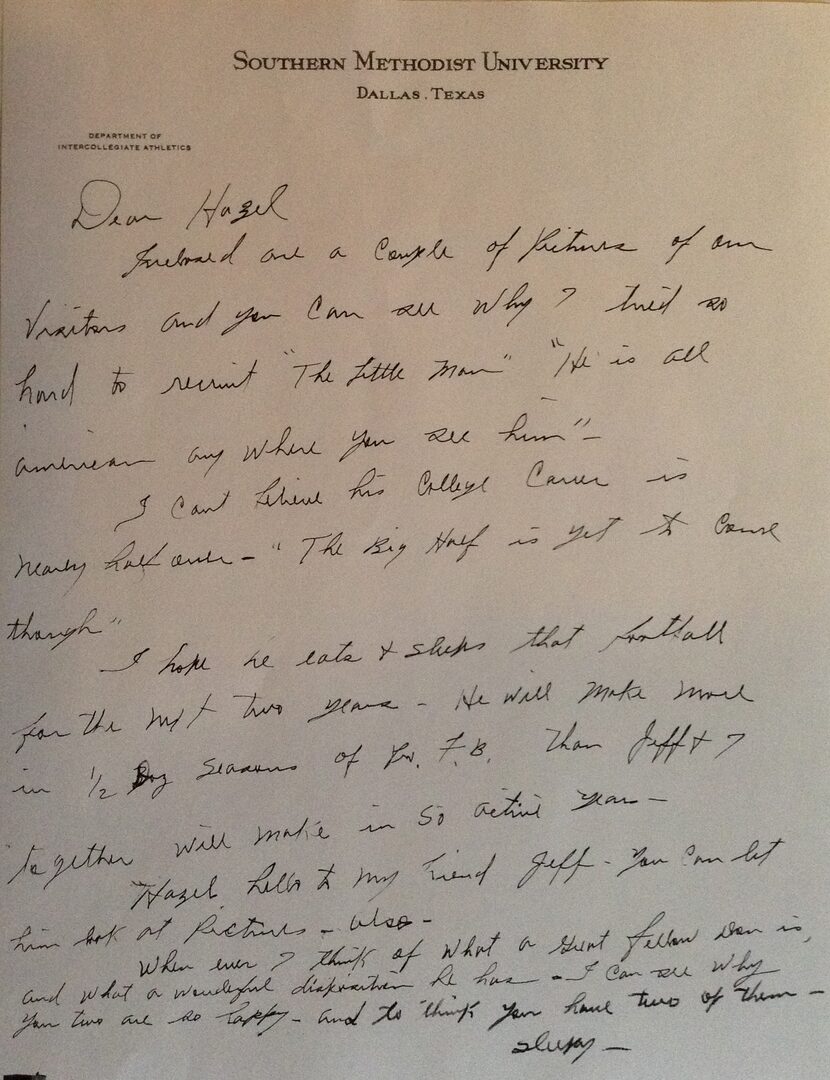 SOUTHERN METHODIST UNIVERSITY
DALLAS . TEXAS
DEPARTMENT OF
INTERCOLLEGIATE ATHLETICS
Dear Hazel
Inclosed are a couple of Pictures of our
Visitors and you can see why I tried so
hard to recruit "The Little Man" "He is all
american any where you see him" -
I cant believe his College Career is
nearly half over - "The Big Half is yet to come
though"
I hope he eats & sleeps that football
for the next two years - He will make more
in 1/2 seasons of Pro. F.B. than Jeff & I
together will make in 50 active years -
"Hazel, hello to my friend Jeff - You can let
him look at Pictures - also -
When ever I think of what a great fellow Don is,
and what a wonderful disposition he has - I can see why
you two are so happy - and to think you have two of them -
Sleepy -